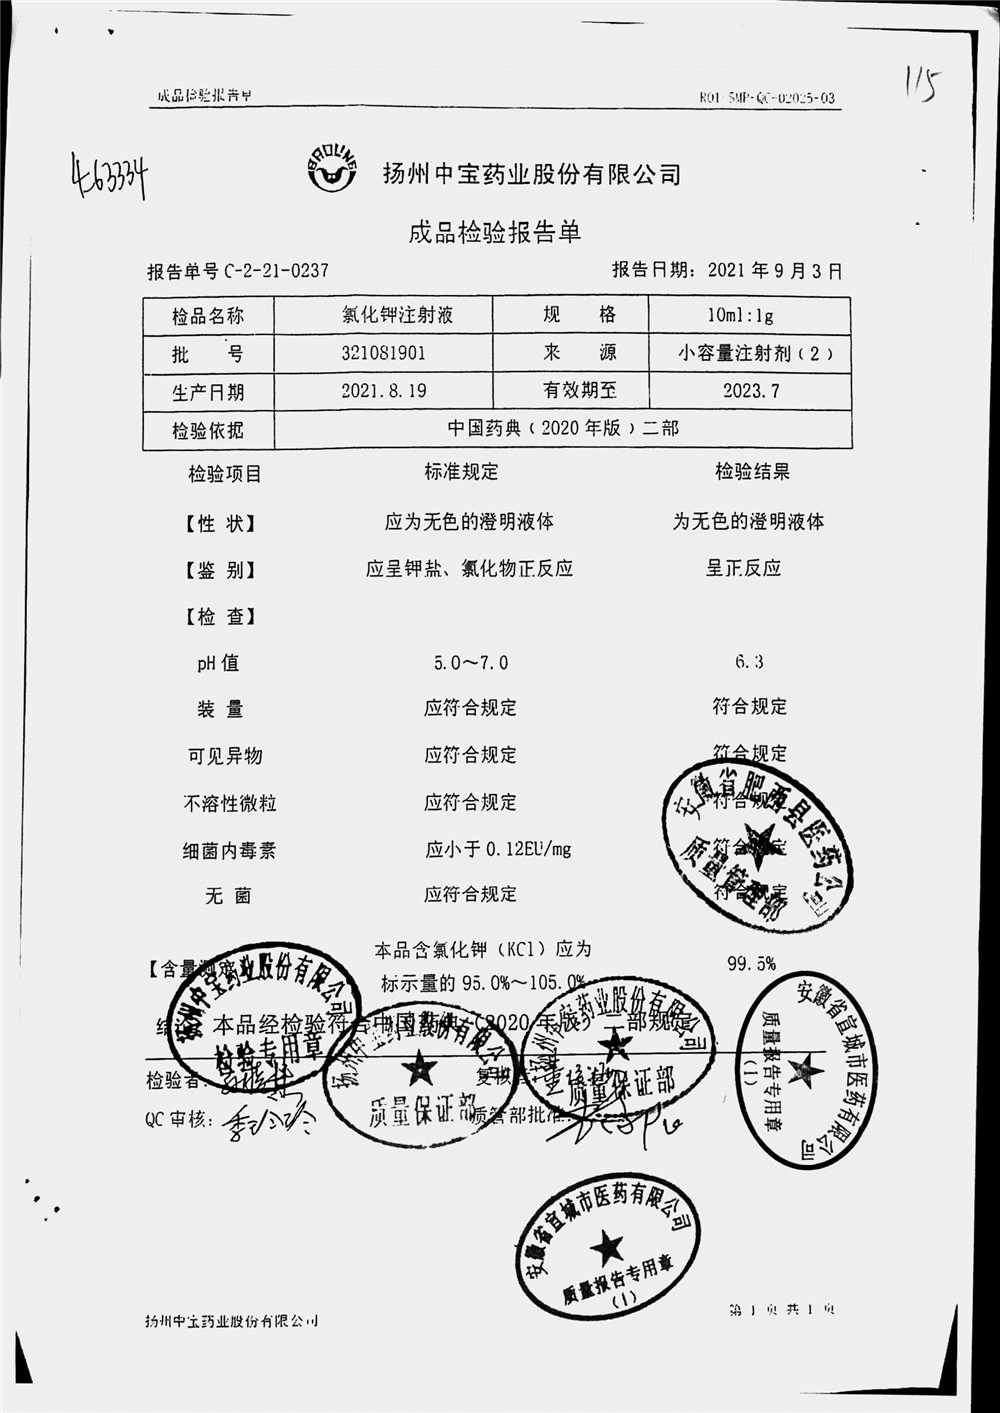 成品检验报告单
R01-SMP-QC-02025-03
115
463334
BAOLING
扬州中宝药业股份有限公司
成品检验报告单
报告单号 C-2-21-0237 报告日期：2021 年 9 月 3 日
检品名称 氯化钾注射液 规 格 10ml:1g
批 号 321081901 来 源 小容量注射剂（2）
生产日期 2021.8.19 有效期至 2023.7
检验依据 中国药典（2020 年版）二部
检验项目 标准规定 检验结果
【性 状】 应为无色的澄明液体 为无色的澄明液体
【鉴 别】 应呈钾盐、氯化物正反应 呈正反应
【检 查】
pH 值 5.0～7.0 6.3
装 量 应符合规定 符合规定
可见异物 应符合规定 符合规定
不溶性微粒 应符合规定 符合规定
细菌内毒素 应小于 0.12EU/mg 符合规定
无 菌 应符合规定 符合规定
安徽省肥西县医药公司
质量管理部
本品含氯化钾（KCl）应为
【含量测定】 标示量的 95.0%～105.0% 99.5%
结论：本品经检验符合中国药典（2020 年版）二部规定
检验者： 复核者：
QC 审核： 质管部批准：
扬州中宝药业股份有限公司
检验专用章
扬州中宝药业股份有限公司
质量保证部
扬州中宝药业股份有限公司
质量保证部
安徽省宣城市医药有限公司
质量报告专用章
（1）
安徽省宣城市医药有限公司
质量报告专用章
（1）
扬州中宝药业股份有限公司
第 1 页 共 1 页